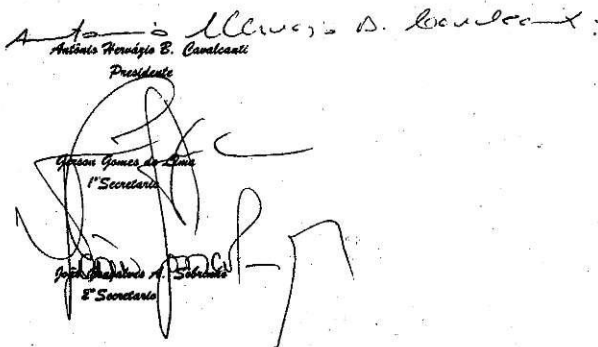 Antonio Hervázio B. Cavalcanti
Antônio Hervázio B. Cavalcanti
Presidente
Gerson Gomes de Lima
1º Secretario
João Gonçalves A. Sobrinho
2º Secretario